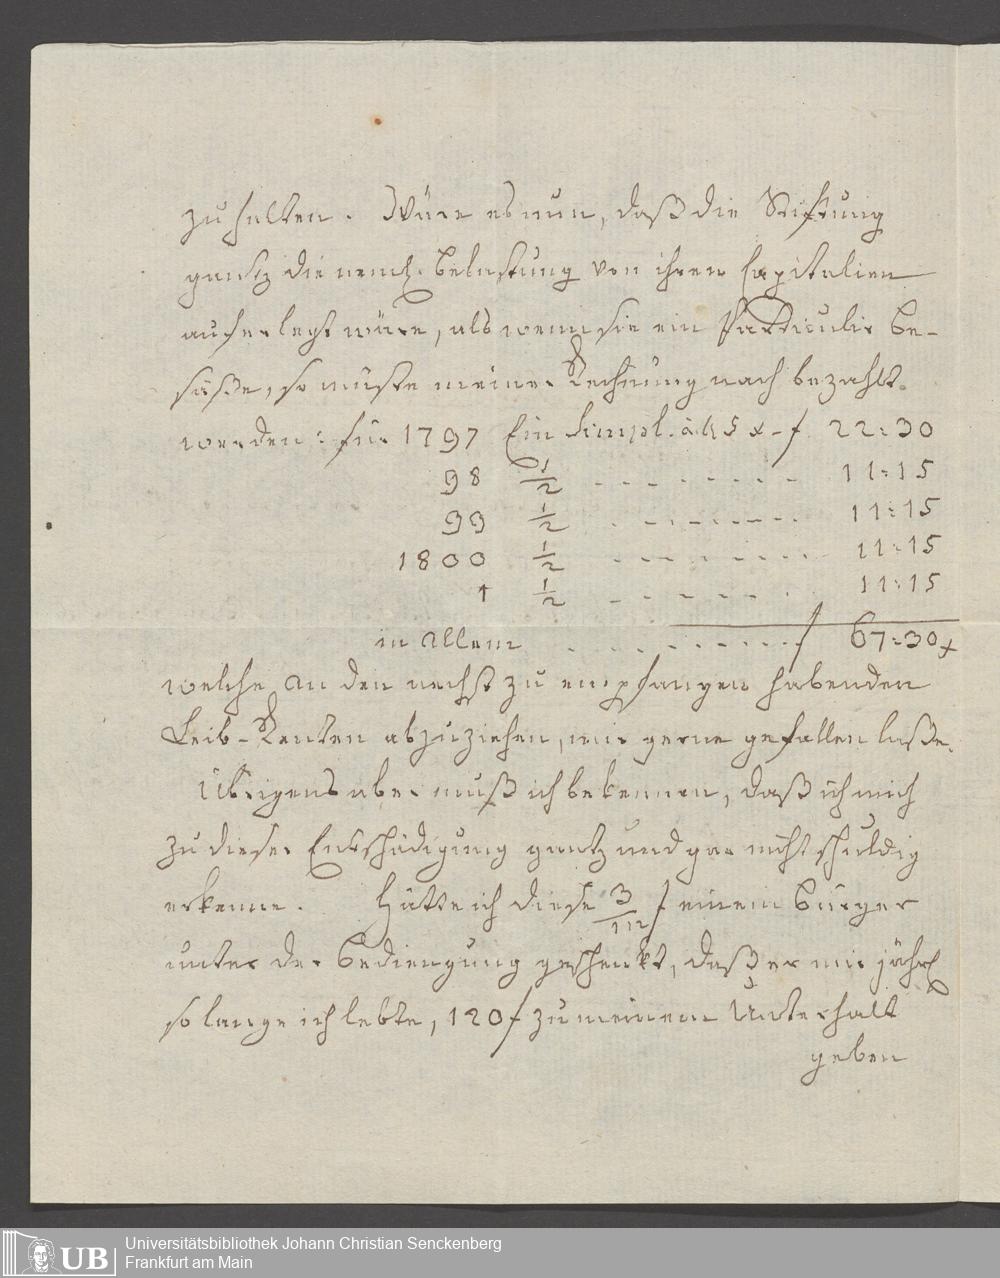 zu halten. Wäre es nun, daß die Stiftung
gantz die neml. Belastung von ihren Capitalien
auferlegt wäre, als wenn sie ein Particulir be-
säße, so müste meiner Rechnung nach bezahlt
werden: für 1797 Ein Simpl. à 45 x - f 22:30
98 1/2 - - - - - - - - 11:15
99 1/2 - - - - - - - - 11:15
1800 1/2 - - - - - - - - 11:15
1 1/2 - - - - - - - 11:15
in allem - - - - - - - - f 67:30 x
welche an den nechst zu empfangen habenden
Leib-Renten abzuziehen, mir gerne gefallen laße.
Übrigens aber muß ich bekennen, daß ich mich
zu dieser Entschädigung gantz und gar nicht schuldig
erkenne. Hätte ich diese 3/m f einem Burger
unter der Bediengung geschenkt, daß er mir jährl
so lange ich lebte, 120 f zu meinem Unterhalt
geben
Universitätsbibliothek Johann Christian Senckenberg
UB Frankfurt am Main